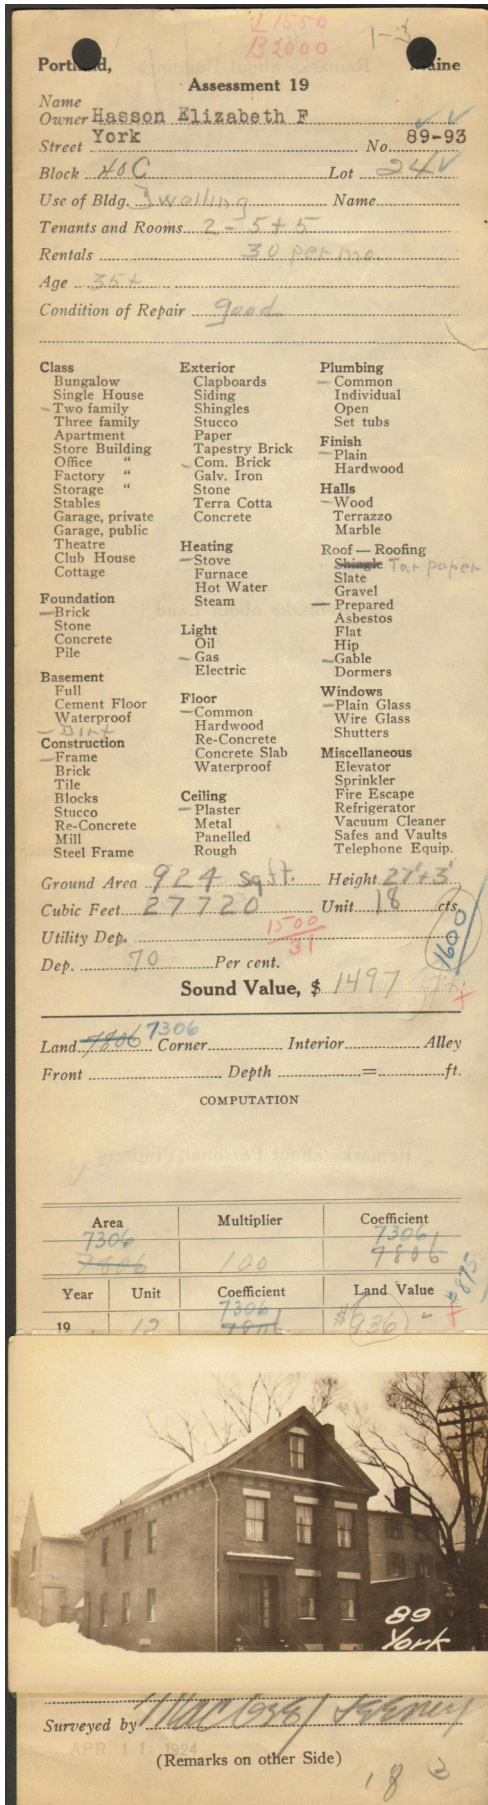 L 1550
B 2000
1-3
Portland, Maine
Assessment 19
Name
Owner Hasson Elizabeth F
Street York No. 89-93
Block 40C Lot 24
Use of Bldg. Dwelling Name
Tenants and Rooms 2 - 5 + 5
Rentals 30 per mo.
Age 35+
Condition of Repair good
Class
Bungalow
Single House
Two family
Three family
Apartment
Store Building
Office "
Factory "
Storage "
Stables
Garage, private
Garage, public
Theatre
Club House
Cottage
Foundation
Brick
Stone
Concrete
Pile
Basement
Full
Cement Floor
Waterproof
Dirt
Construction
Frame
Brick
Tile
Blocks
Stucco
Re-Concrete
Mill
Steel Frame
Exterior
Clapboards
Siding
Shingles
Stucco
Paper
Tapestry Brick
Com. Brick
Galv. Iron
Stone
Terra Cotta
Concrete
Heating
Stove
Furnace
Hot Water
Steam
Light
Oil
Gas
Electric
Floor
Common
Hardwood
Re-Concrete
Concrete Slab
Waterproof
Ceiling
Plaster
Metal
Panelled
Rough
Plumbing
Common
Individual
Open
Set tubs
Finish
Plain
Hardwood
Halls
Wood
Terrazzo
Marble
Roof — Roofing
Shingle Tar paper
Slate
Gravel
Prepared
Asbestos
Flat
Hip
Gable
Dormers
Windows
Plain Glass
Wire Glass
Shutters
Miscellaneous
Elevator
Sprinkler
Fire Escape
Refrigerator
Vacuum Cleaner
Safes and Vaults
Telephone Equip.
Ground Area 924 sq ft. Height 27'+3'
Cubic Feet 27720 Unit 18 cts.
Utility Dep. 1500
31
1600
Dep. 70 Per cent.
Sound Value, $ 1497
Land 7806 7306 Corner Interior Alley
Front Depth = ft.
COMPUTATION
Area Multiplier Coefficient
7306 7306
7806 100 7806
Year Unit Coefficient Land Value
7306
19 12 7806 $936
$875
89
York
Surveyed by
APR 11 1924
(Remarks on other Side)
18